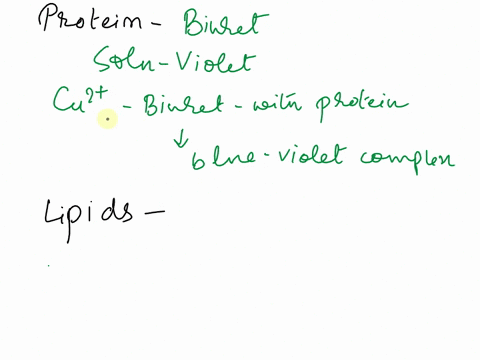 Protein - Biuret
Soln - Violet
Cu²⁺ - Biuret - with protein
↓
blue - violet complex
Lipids -